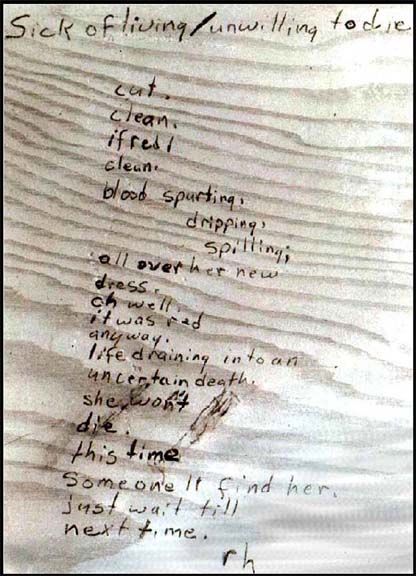 Sick of living / unwilling to die
cut.
clean.
if red /
clean.
blood spurting,
dripping,
spilling;
all over her new
dress.
oh well,
it was red
anyway.
life draining into an
uncertain death.
she wont
die.
this time
Someone ll find her.
just wait till
next time.
rh